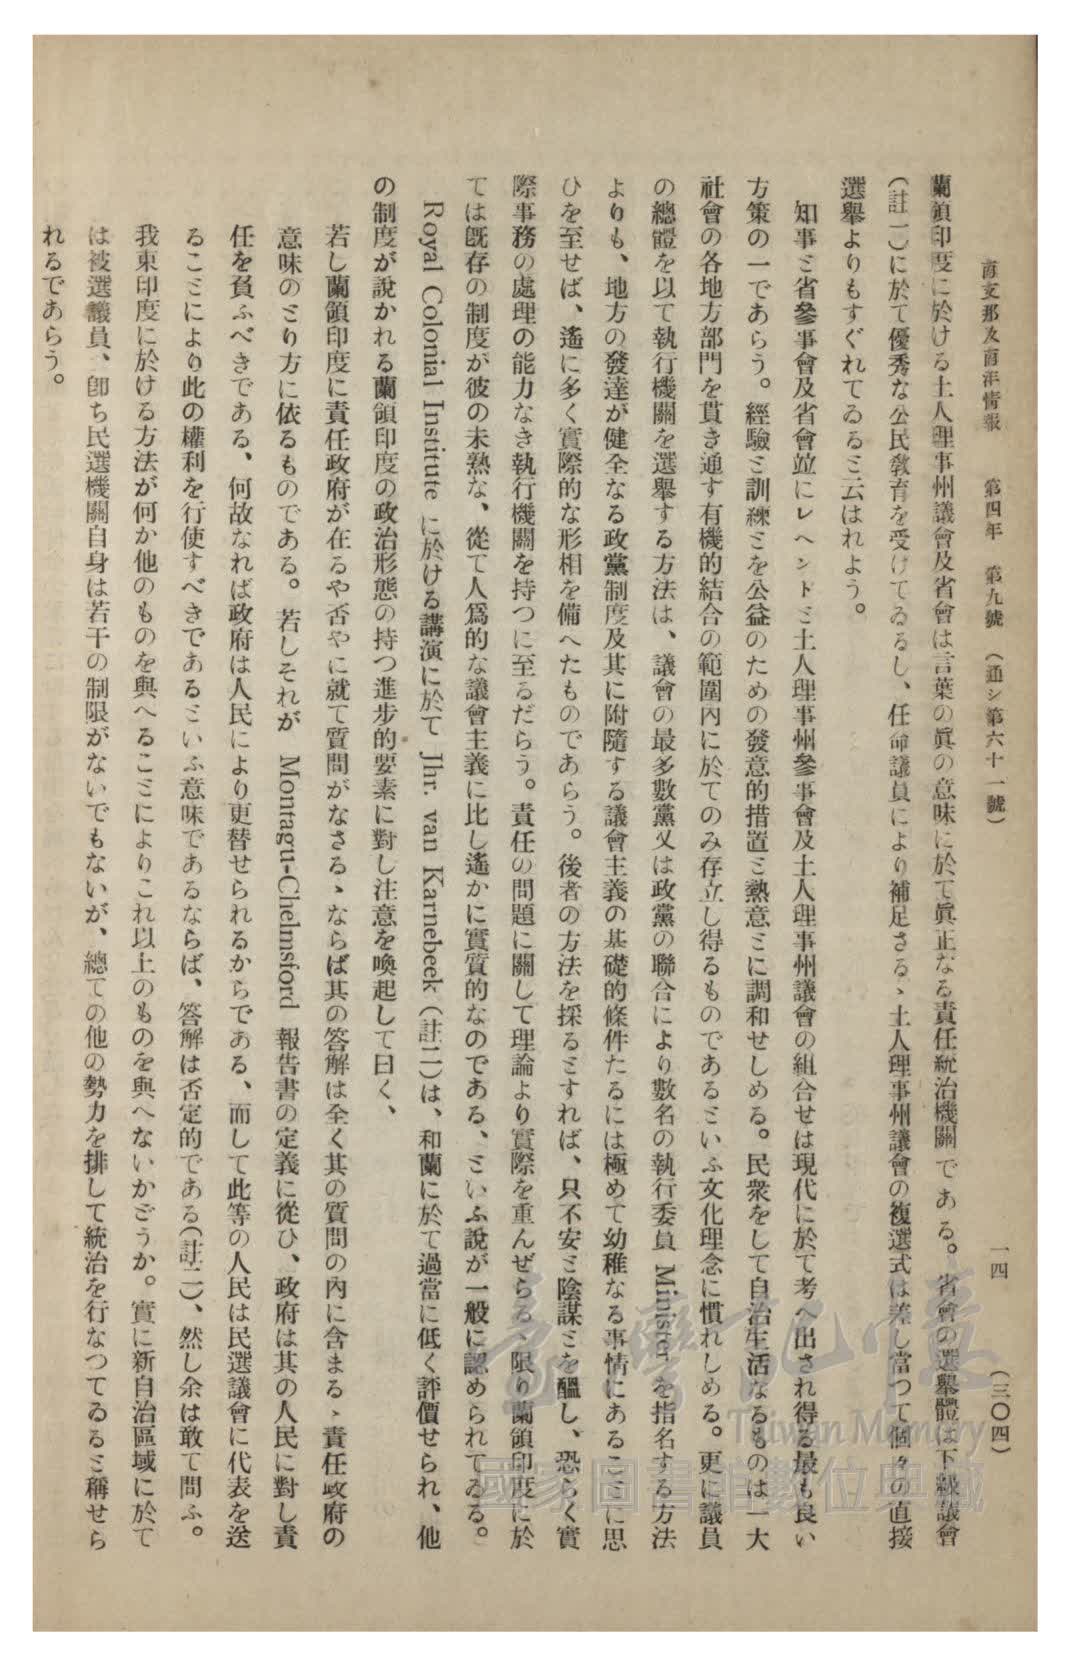 南支那及南洋情報　第四年　第九號　（通シ第六十一號）　一四　（三〇四）
蘭領印度に於ける土人理事州議會及省會は言葉の眞の意味に於て眞正なる責任統治機關である。省會の選擧體は下級議會
（註一）に於て優秀な公民敎育を受けてゐるし、任命議員により補足さるゝ土人理事州議會の複選式は差し當つて個々の直接
選擧よりもすぐれてゐるミ云はれよう。
知事ミ省參事會及省會竝にレヘントミ土人理事州參事會及土人理事州議會の組合せは現代に於て考へ出され得る最も良い
方策の一であらう。經驗ミ訓練ミを公益のための發意的措置ミ熱意ミに調和せしめる。民衆をして自治生活なるものは一大
社會の各地方部門を貫き通す有機的結合の範圍內に於てのみ存立し得るものであるミいふ文化理念に慣れしめる。更に議員
の總體を以て執行機關を選擧する方法は、議會の最多數黨又は政黨の聯合により數名の執行委員 Minister を指名する方法
よりも、地方の發達が健全なる政黨制度及其に附隨する議會主義の基礎的條件たるには極めて幼稚なる事情にあるこミに思
ひを至せば、遙に多く實際的な形相を備へたものであらう。後者の方法を採るミすれば、只不安ミ陰謀ミを釀し、恐らく實
際事務の處理の能力なき執行機關を持つに至るだらう。責任の問題に關して理論より實際を重んぜらるゝ限り蘭領印度に於
ては旣存の制度が彼の未熟な、從て人爲的な議會主義に比し遙かに實質的なのである、ミいふ說が一般に認められてゐる。
Royal Colonial Institute に於ける講演に於て Jhr. van Karnebeek（註二）は、和蘭に於て過當に低く評價せられ、他
の制度が說かれる蘭領印度の政治形態の持つ進步的要素に對し注意を喚起して曰く、
若し蘭領印度に責任政府が在るや否やに就て質問がなさるゝならば其の答解は全く其の質問の內に含まるゝ責任政府の
意味のミり方に依るものである。若しそれが Montagu-Chelmsford 報告書の定義に從ひ、政府は其の人民に對し責
任を負ふべきである、何故なれば政府は人民により更替せられるからである、而して此等の人民は民選議會に代表を送
るこミにより此の權利を行使すべきであるミいふ意味であるならば、答解は否定的である（註二）、然し余は敢て問ふ。
我東印度に於ける方法が何か他のものを與へるこミによりこれ以上のものを與へないかどうか。實に新自治區域に於て
は被選議員、卽ち民選機關自身は若干の制限がないでもないが、總ての他の勢力を排して統治を行なつてゐるミ稱せら
れるであらう。
臺灣記憶
Taiwan Memory
國家圖書館數位典藏